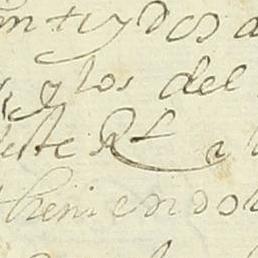 ntiydos a
y los del
deste Rl a
theniendol